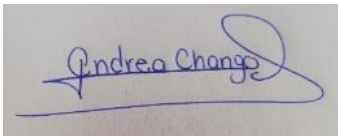 Andrea Chango